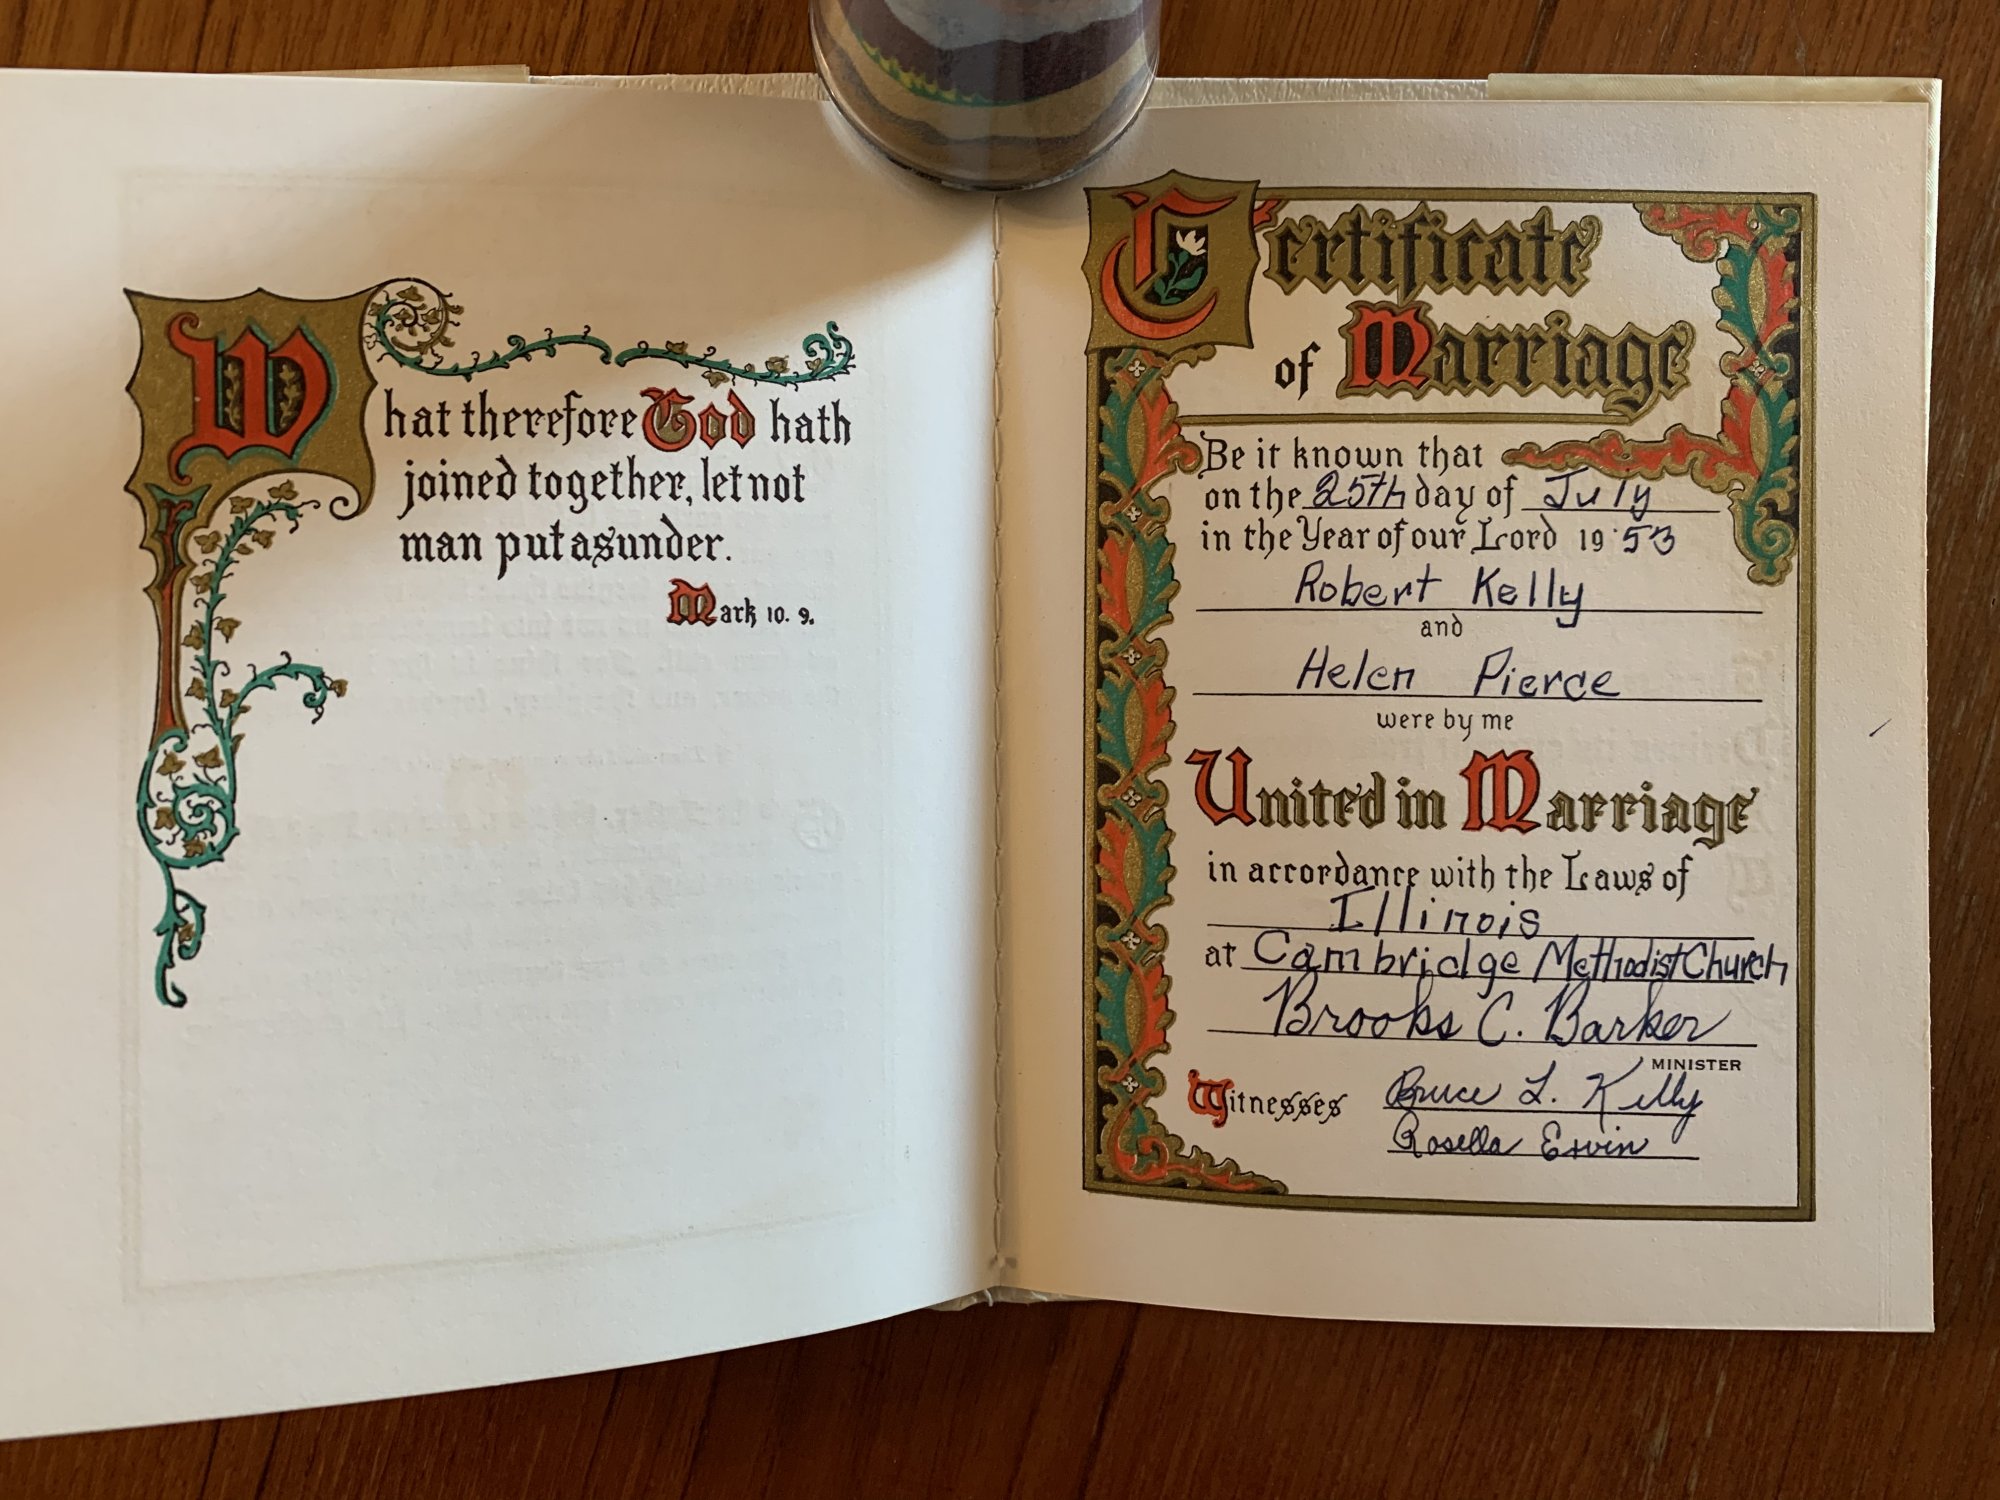 What therefore God hath
joined together, let not
man put asunder.
Mark 10. 9.
Certificate
of Marriage
Be it known that
on the 25th day of July
in the Year of our Lord 1953
Robert Kelly
and
Helen Pierce
were by me
United in Marriage
in accordance with the Laws of
Illinois
at Cambridge Methodist Church
Brooks C. Barker
MINISTER
Witnesses Bruce L. Kelly
Rosella Erwin